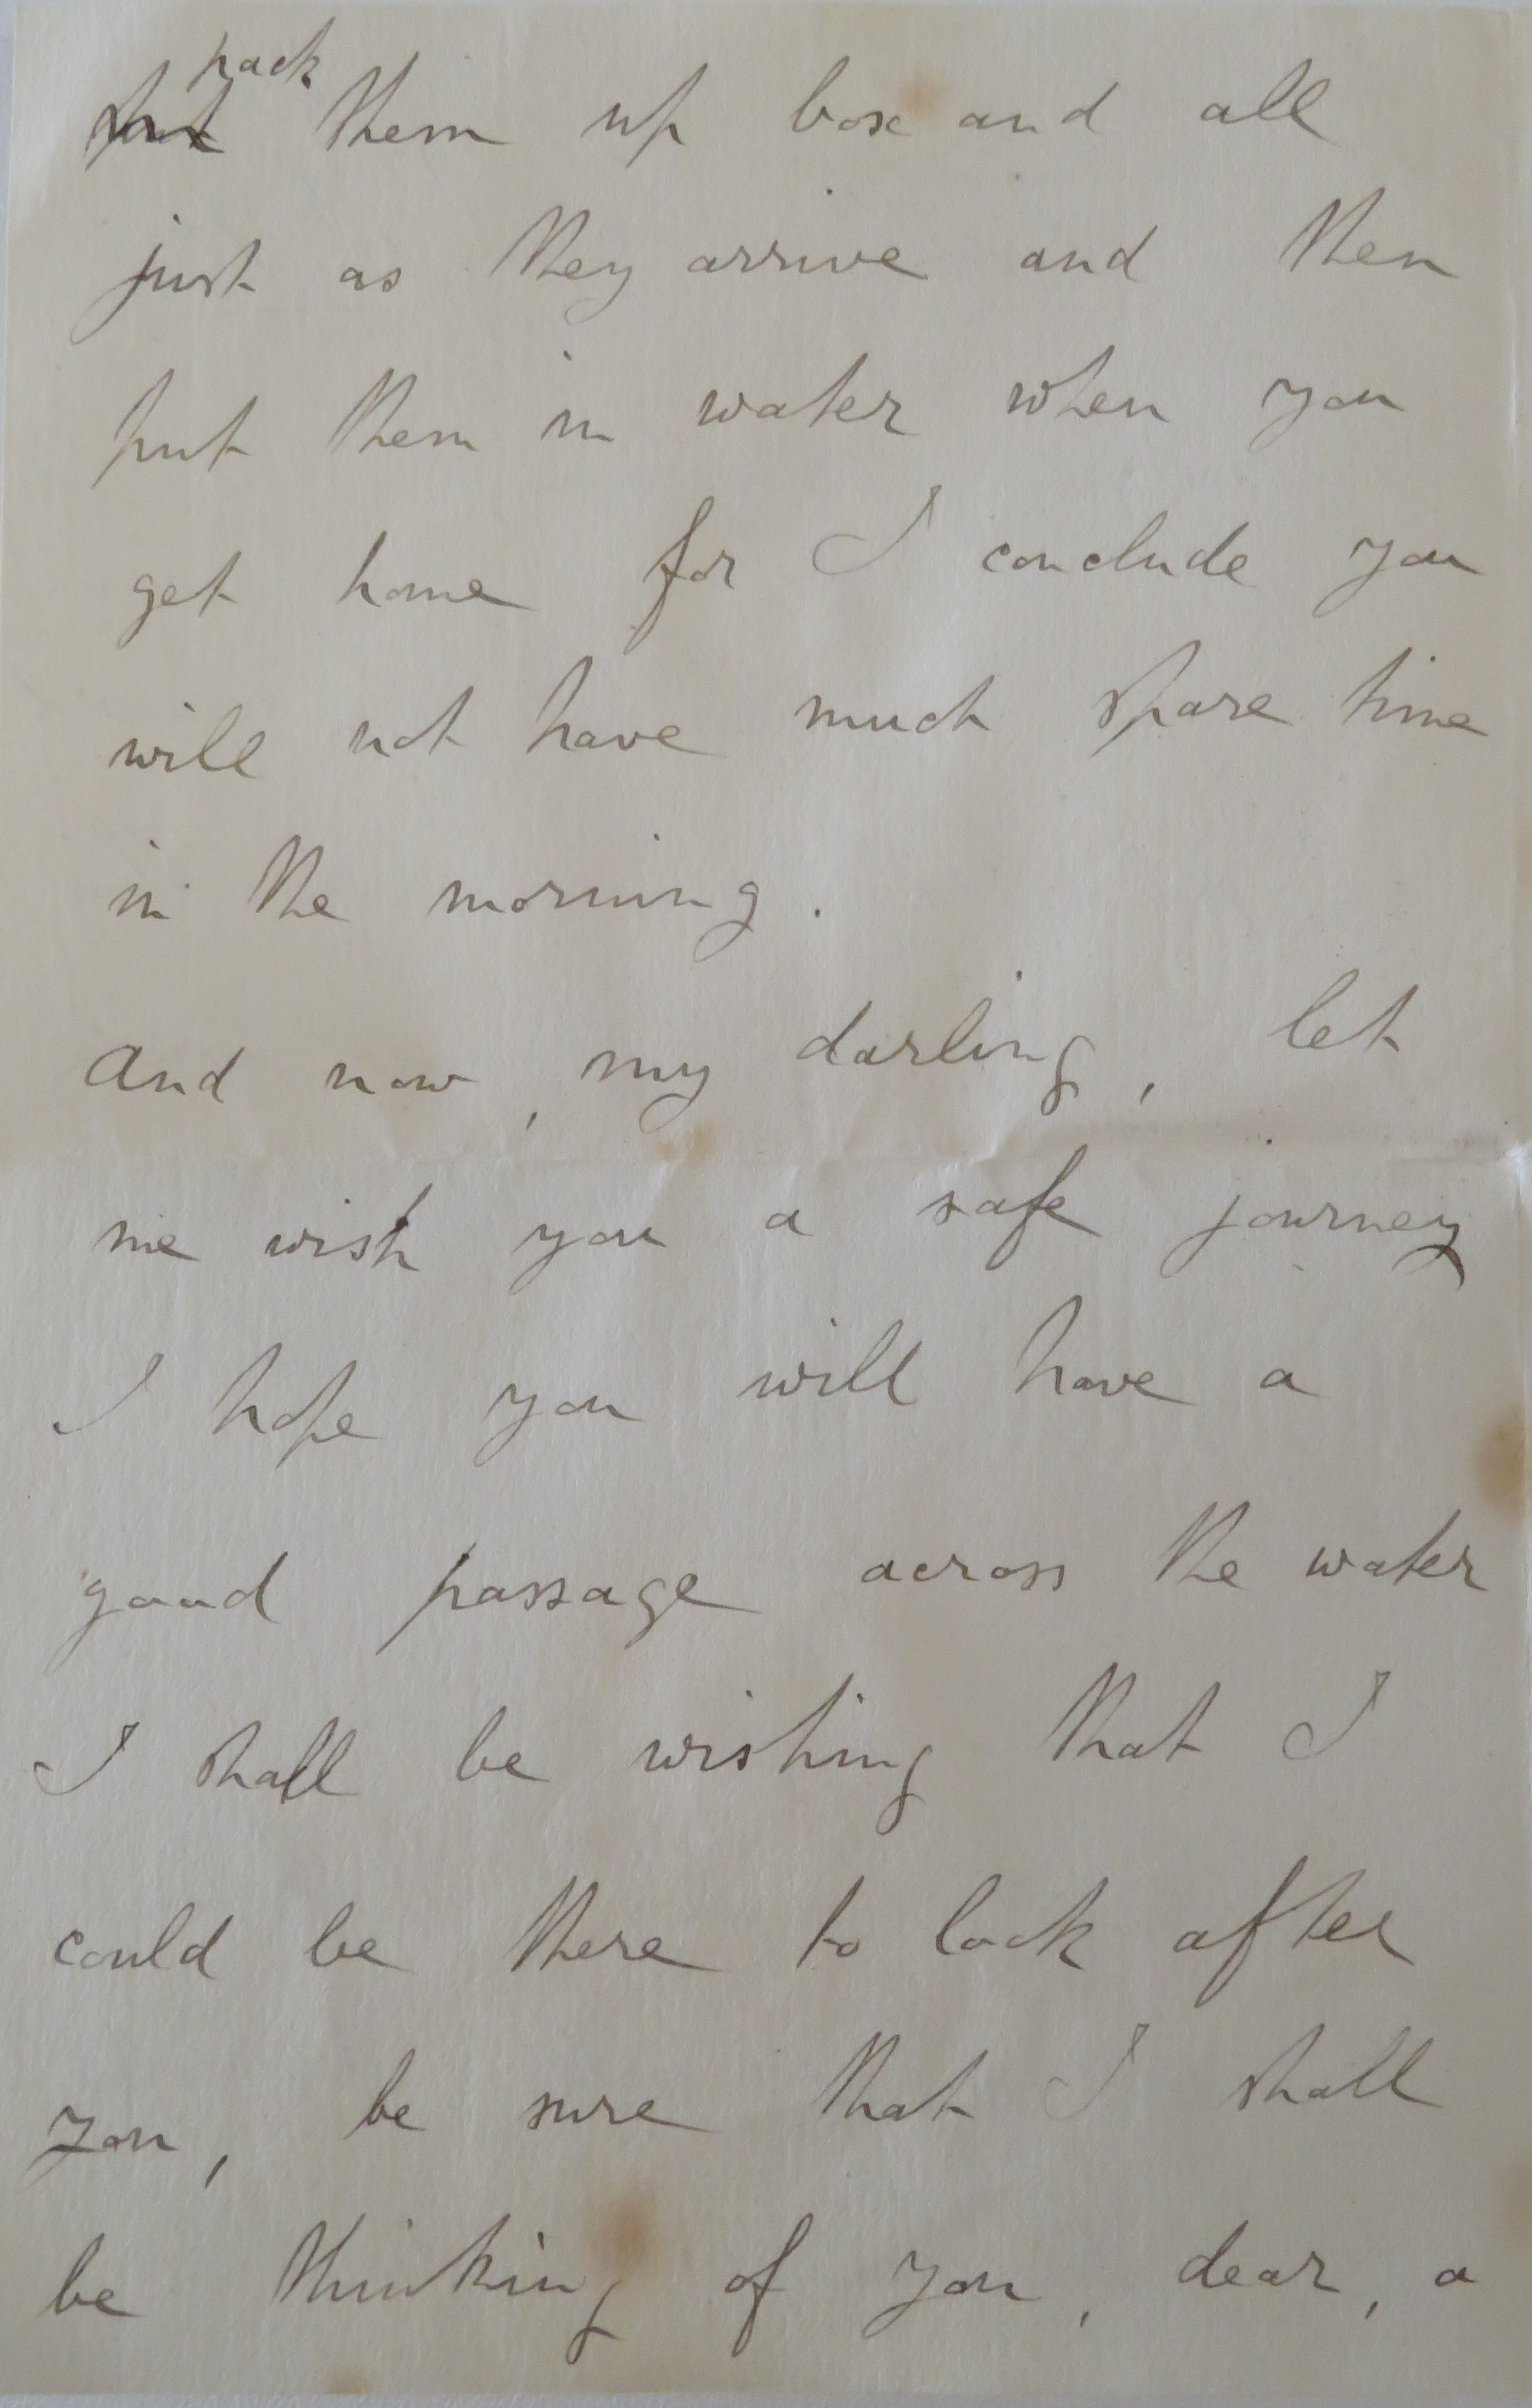 put pack them up box and all
just as they arrive and then
put them in water when you
get home for I conclude you
will not have much spare time
in the morning.
And now, my darling, let
me wish you a safe journey
I hope you will have a
good passage across the water
I shall be wishing that I
could be there to look after
you, be sure that I shall
be thinking of you, dear, a